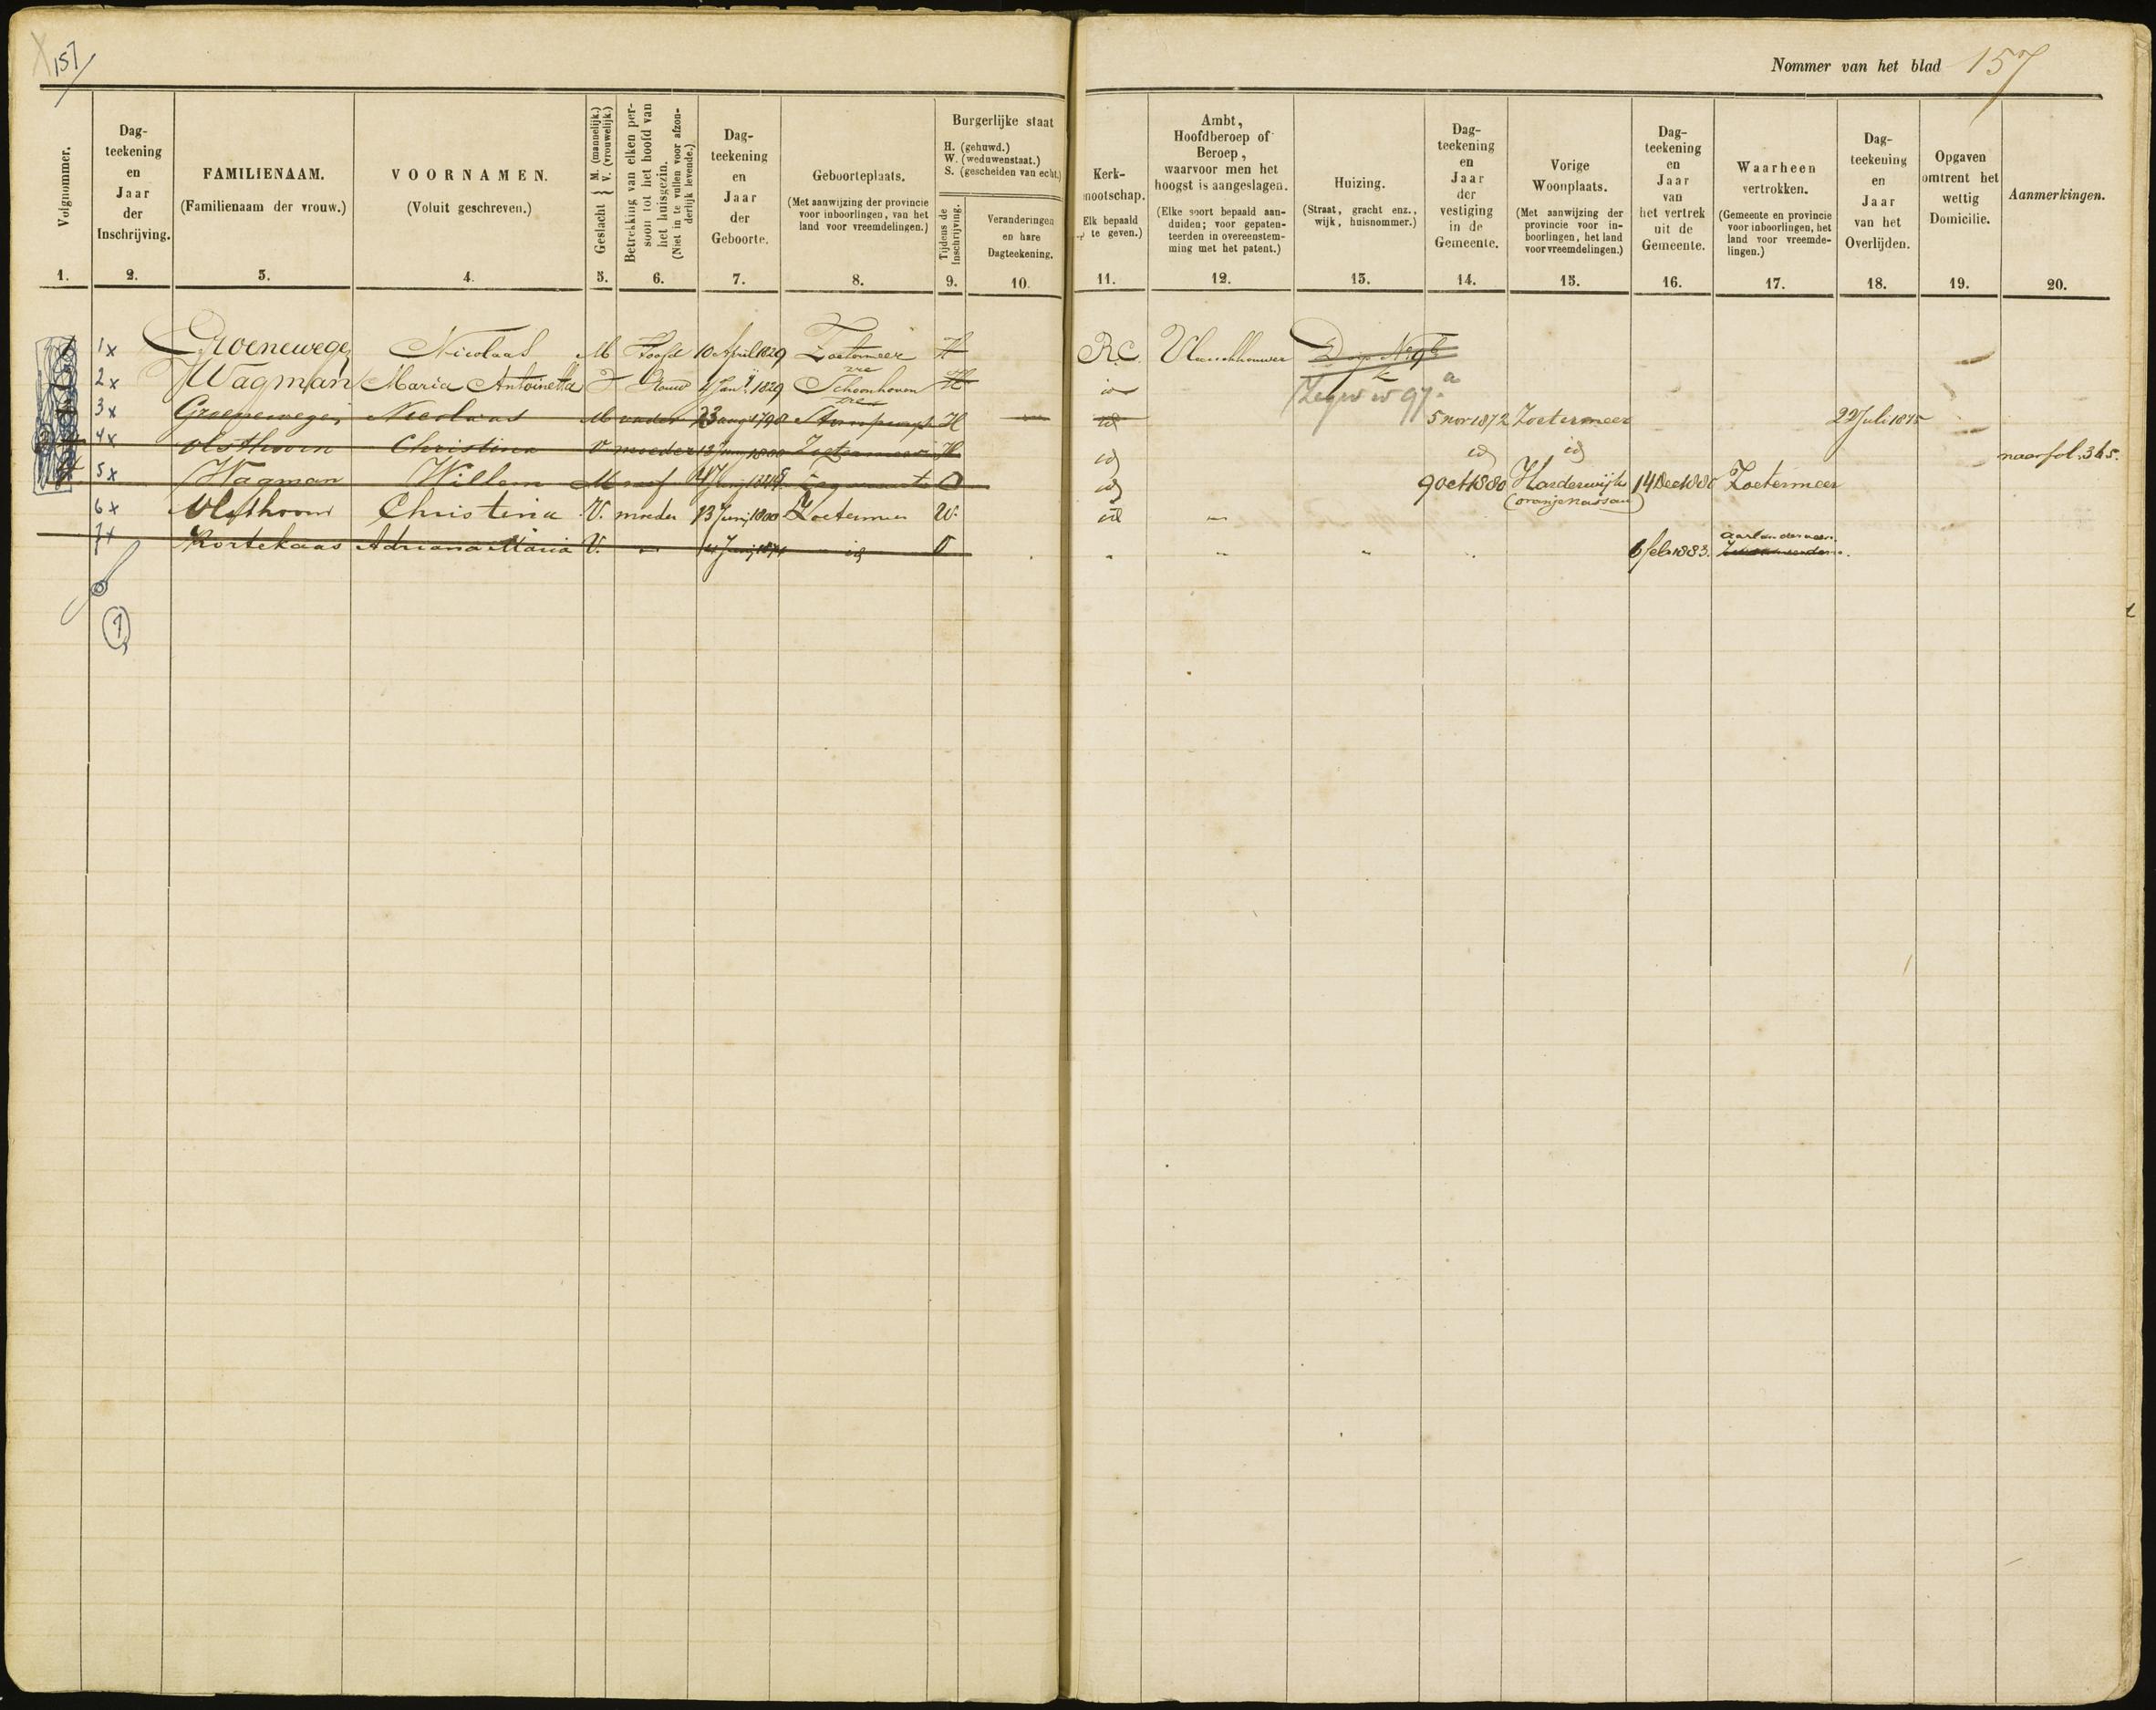 157
Nommer van het blad 157
Volgnommer.
1.
Dag-
teekening
en
Jaar
der
Inschrijving.
2.
FAMILIENAAM.
(Familienaam der vrouw.)
3.
VOORNAMEN.
(Voluit geschreven.)
4.
Geslacht { M. (mannelijk.) V. (vrouwelijk.)
5.
Betrekking van elken per-
soon tot het hoofd van
het huisgezin.
(Niet in te vullen voor afzon-
derlijk levende.)
6.
Dag-
teekening
en
Jaar
der
Geboorte.
7.
Geboorteplaats.
(Met aanwijzing der provincie
voor inboorlingen, van het
land voor vreemdelingen.)
8.
Burgerlijke staat
H. (gehuwd.)
W. (weduwenstaat.)
S. (gescheiden van echt.)
Tijdens de
inschrijving.
9.
Veranderingen
en hare
Dagteekening.
10.
Kerk-
nootschap.
Elk bepaald
te geven.)
11.
Ambt,
Hoofdberoep of
Beroep,
waarvoor men het
hoogst is aangeslagen.
(Elke soort bepaald aan-
duiden; voor gepaten-
teerden in overeenstem-
ming met het patent.)
12.
Huizing.
(Straat, gracht enz.,
wijk, huisnommer.)
13.
Dag-
teekening
en
Jaar
der
vestiging
in de
Gemeente.
14.
Vorige
Woonplaats.
(Met aanwijzing der
provincie voor in-
boorlingen, het land
voor vreemdelingen.)
15.
Dag-
teekening
en
Jaar
van
het vertrek
uit de
Gemeente.
16.
Waarheen
vertrokken.
(Gemeente en provincie
voor inboorlingen, het
land voor vreemde-
lingen.)
17.
Dag-
teekening
en
Jaar
van het
Overlijden.
18.
Opgaven
omtrent het
wettig
Domicilie.
19.
Aanmerkingen.
20.
1x Groenewegen Nicolaas M Hoofd 10 April 1829 Zoetermeer H R.C. Vlasschhouwer
2x Wagman Maria Antoinetta Vrouw 4 Jany 1829 Schoonhoven H id Zegw w 97 a
3x Groenewegen Nicolaas M vader 23 aug 1798 Stompwijk H id 5 nov 1872 Zoetermeer 22 Juli 1875
4x Olsthoorn Christina V moeder 13 Juny 1800 Zoetermeer H id id id naar fol. 345.
5x Wagman Willem M neef O id 9 Oct 1880 Harderwijk (oranje Nassau) 14 Dec 1880 Zoetermeer
6x Olsthoorn Christina V. moeder 13 Juny 1800 Zoetermeer W. id "
7x Kortekaas Adriana Maria V. " 14 Juny 1874 id O " " " 6 feb 1883. Aarlanderveen.
1